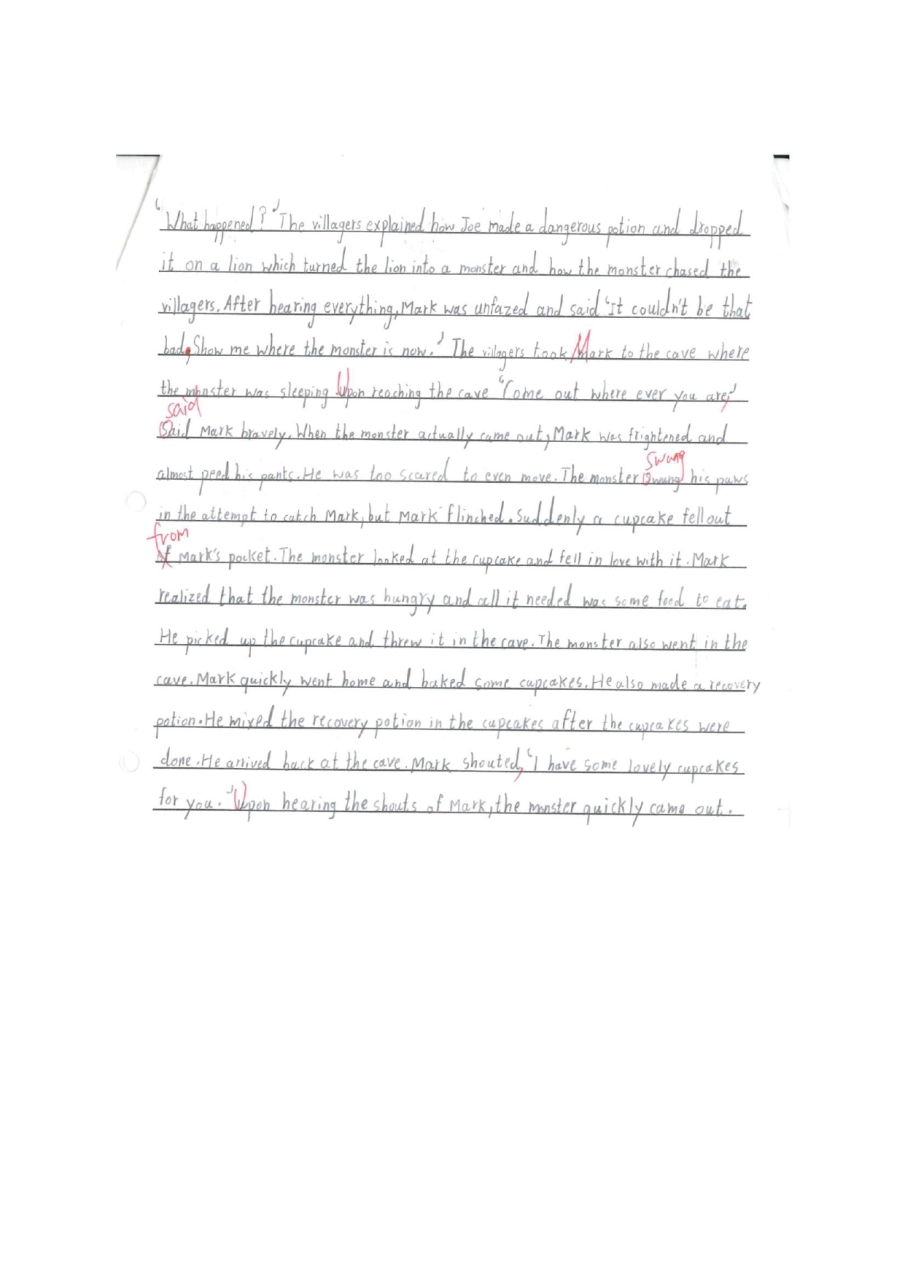 'What happened?' The villagers explained how Joe made a dangerous potion and dropped
it on a lion which turned the lion into a monster and how the monster chased the
villagers. After hearing everything, Mark was unfazed and said 'It couldn't be that
bad. Show me where the monster is now.' The villagers took Mark to the cave where
the monster was sleeping Upon reaching the cave 'Come out where ever you are,'
said
Said Mark bravely. When the monster actually came out, Mark was frightened and
swung
almost peed his pants. He was too scared to even move. The monster Swung his paws
in the attempt to catch Mark, but Mark flinched. Suddenly a cupcake fell out
from
of Mark's pocket. The monster looked at the cupcake and fell in love with it. Mark
realized that the monster was hungry and all it needed was some food to eat.
He picked up the cupcake and threw it in the cave. The monster also went in the
cave. Mark quickly went home and baked some cupcakes. He also made a recovery
potion. He mixed the recovery potion in the cupcakes after the cupcakes were
done. He arrived back at the cave. Mark shouted, 'I have some lovely cupcakes
for you.' Upon hearing the shouts of Mark, the monster quickly came out.